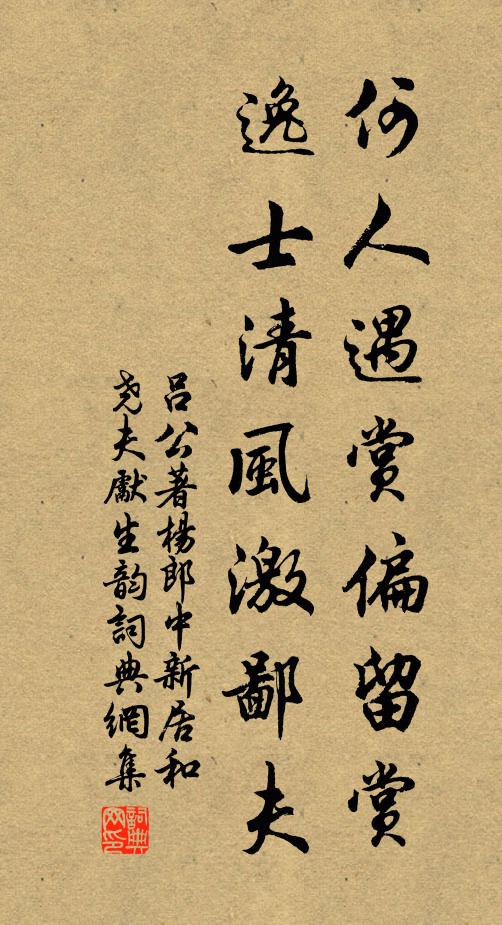 何人遇賞偏留賞
逸士清風激鄙夫
吕公著楊郎中新居和
尧夫獻生韵詞典網集
詞典网印